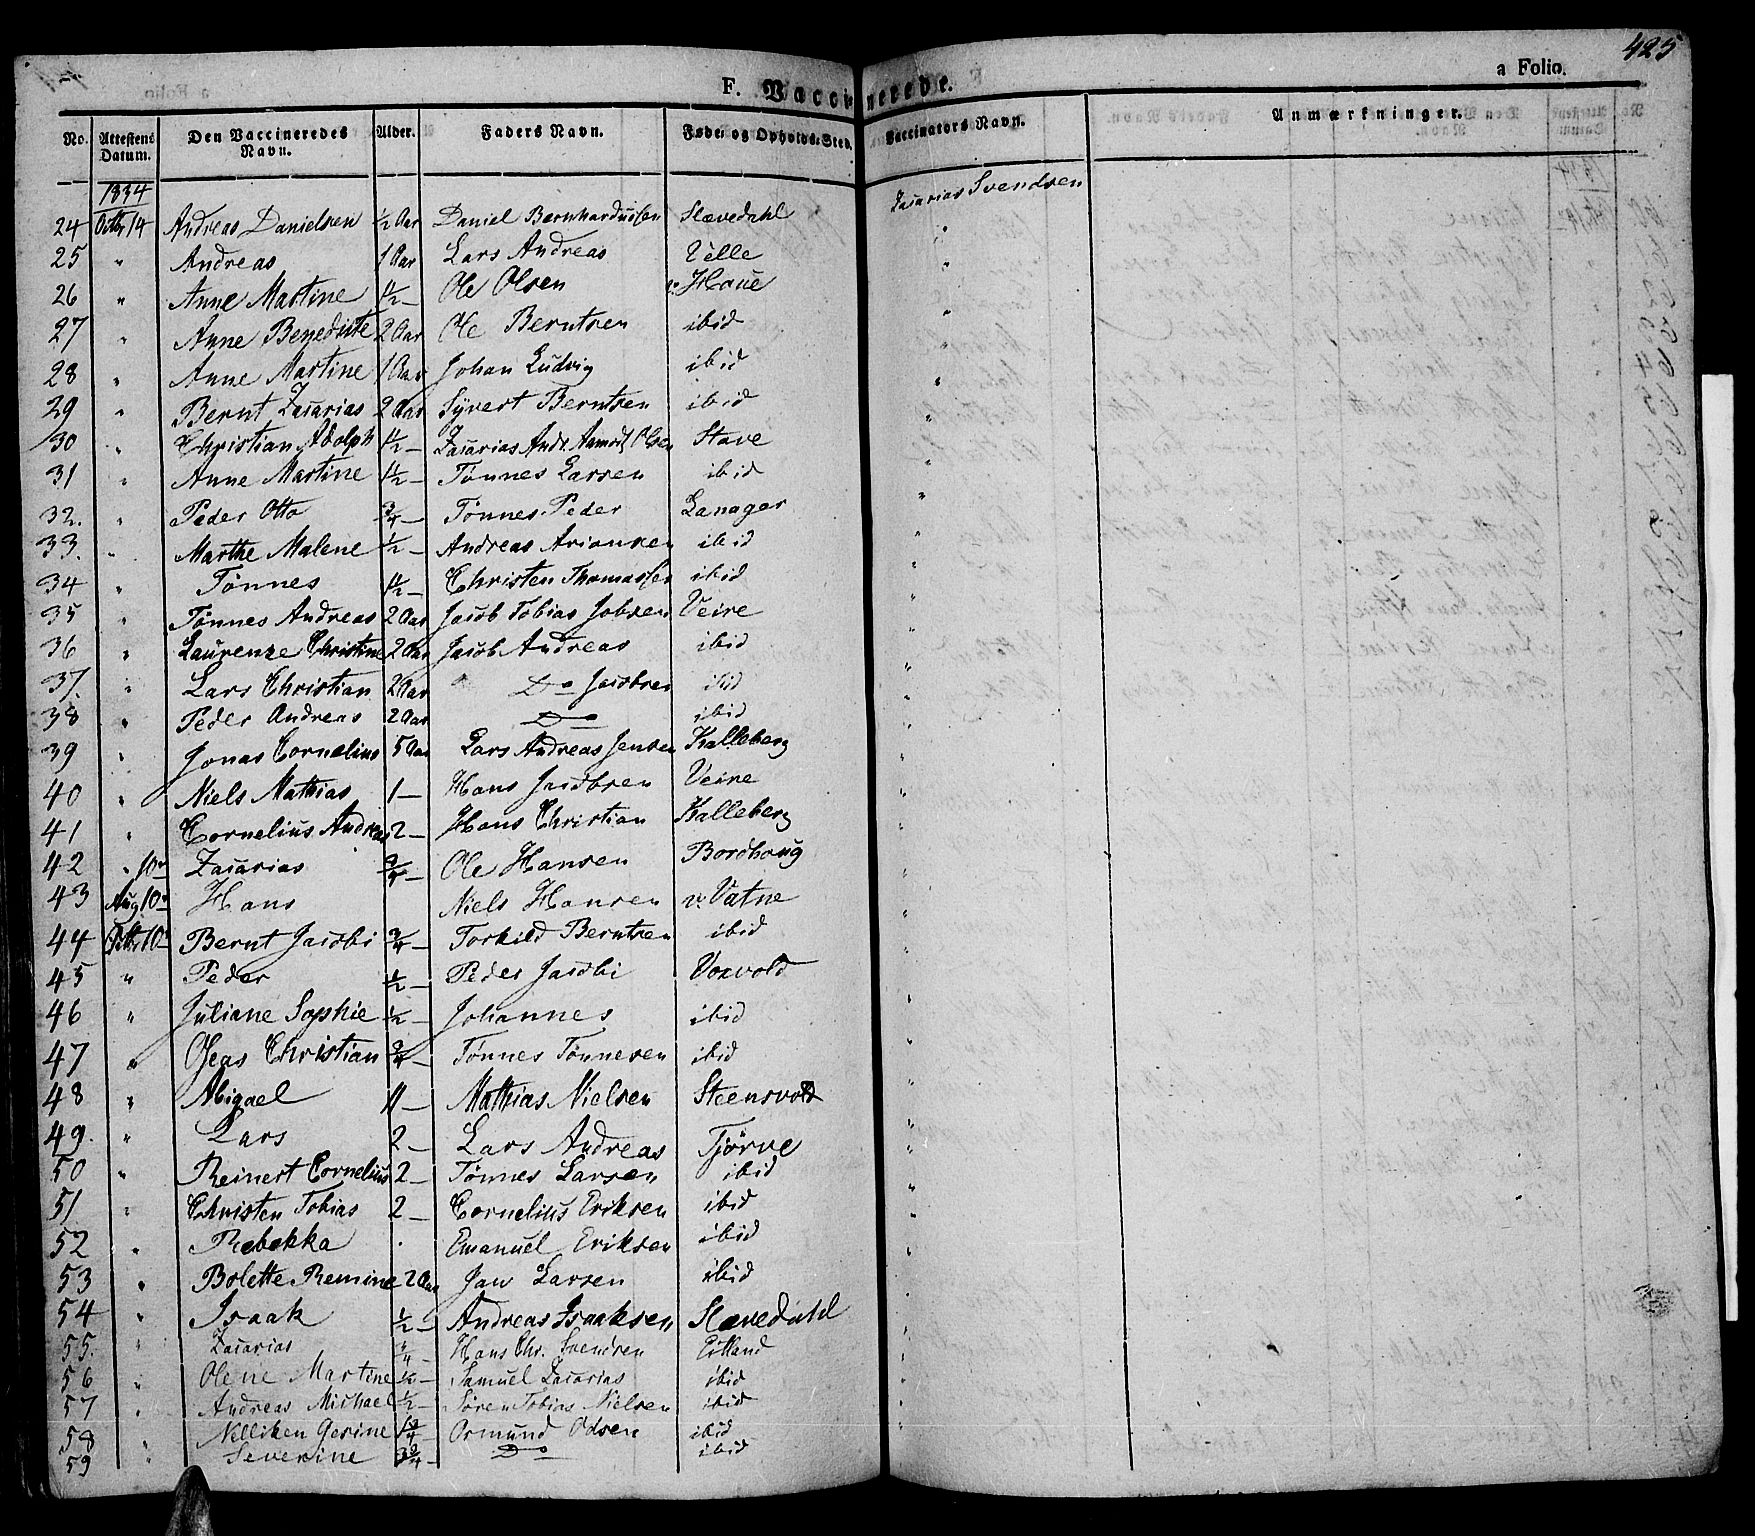 425
F. Vaccinerede.
a Folio.
No. Attestens Datum. Den Vaccineredes Navn. Alder. Faders Navn. Føde- og Opholds-Sted. Vaccinators Navn. Anmærkninger.
1834 Zacarias Svendsen
24 Octbr 14 Andreas Danielsen ½ Aar Daniel Bernhardussen Slævedahl "
25 " Andreas 1 Aar Lars Andreas Velle "
26 " Anne Martine 1½ — Ole Olsen v. Haue "
27 " Anne Benedicte 2 Aar Ole Berntsen ibid "
28 " Anne Martine 1 Aar Johan Ludvig ibid "
29 " Bernt Zacarias 2 Aar Syvert Berntsen ibid "
30 " Christian Adolph 1½ — Zacarias Andr. Olsen Stave "
31 " Anne Martine 1½ — Tønnes Larsen ibid "
32. " Peder Otto ¾ — Tønnes Peder Lanager "
33. " Marthe Malene ½ — Andreas Ariansen ibid "
34 " Tønnes 1½ — Christen Thomassen ibid "
35 " Tønnes Andreas 2 Aar Jacob Tobias Jobsen Veire "
36 " Laurenze Christine 2 Aar Jacob Andreas ibid "
37. " Lars Christian 2 Aar Do Jacobsen ibid "
38 " Peder Andreas 2 Aar Do ibid "
39 " Jonas Cornelius 5 Aar Lars Andreas Jensen Kalleberg "
40 " Niels Mathias 1 — Hans Jacobsen Veire "
41 " Cornelius Andreas 2 — Hans Christian Kalleberg "
42 " 10 Zacarias ¾ — Ole Hansen Bordhoug "
43 Aug 10 Hans Niels Hansen v. Vatne "
44 Octbr 10 Bernt Jacobi ¾ — Torkild Berntsen ibid "
45 " Peder ½ — Peder Jacobi Voxvold "
46 " Juliane Sophie ½ — Johannes ibid "
47 " Oseas Christian ¾ — Tønnes Tønnesen ibid "
48 " Abigael 11 — Mathias Nielsen Steensvold "
49. " Lars 2 — Lars Andreas Tjørve "
50 " Reinert Cornelius 2 — Tønnes Larsen ibid "
51 " Christen Tobias 2 — Cornelius Eriksen ibid "
52 " Rebekka . Emanuel Eriksen ibid "
53 " Bolette Remine 2 Aar Jan Larsen ibid "
54 " Isaak ½ — Andreas Isaaksen Slævedahl "
55. " Zacarias ¾ — Hans Chr. Svendsen Eitland "
56 " Olene Martine ½ — Samuel Zacarias ibid "
57 " Andreas Michael ½ — Søren Tobias Nielsen ibid "
58 " Nelliken Gerine 1¾ Ormund Odsen ibid "
59 " Severine 3¾ — Do ibid